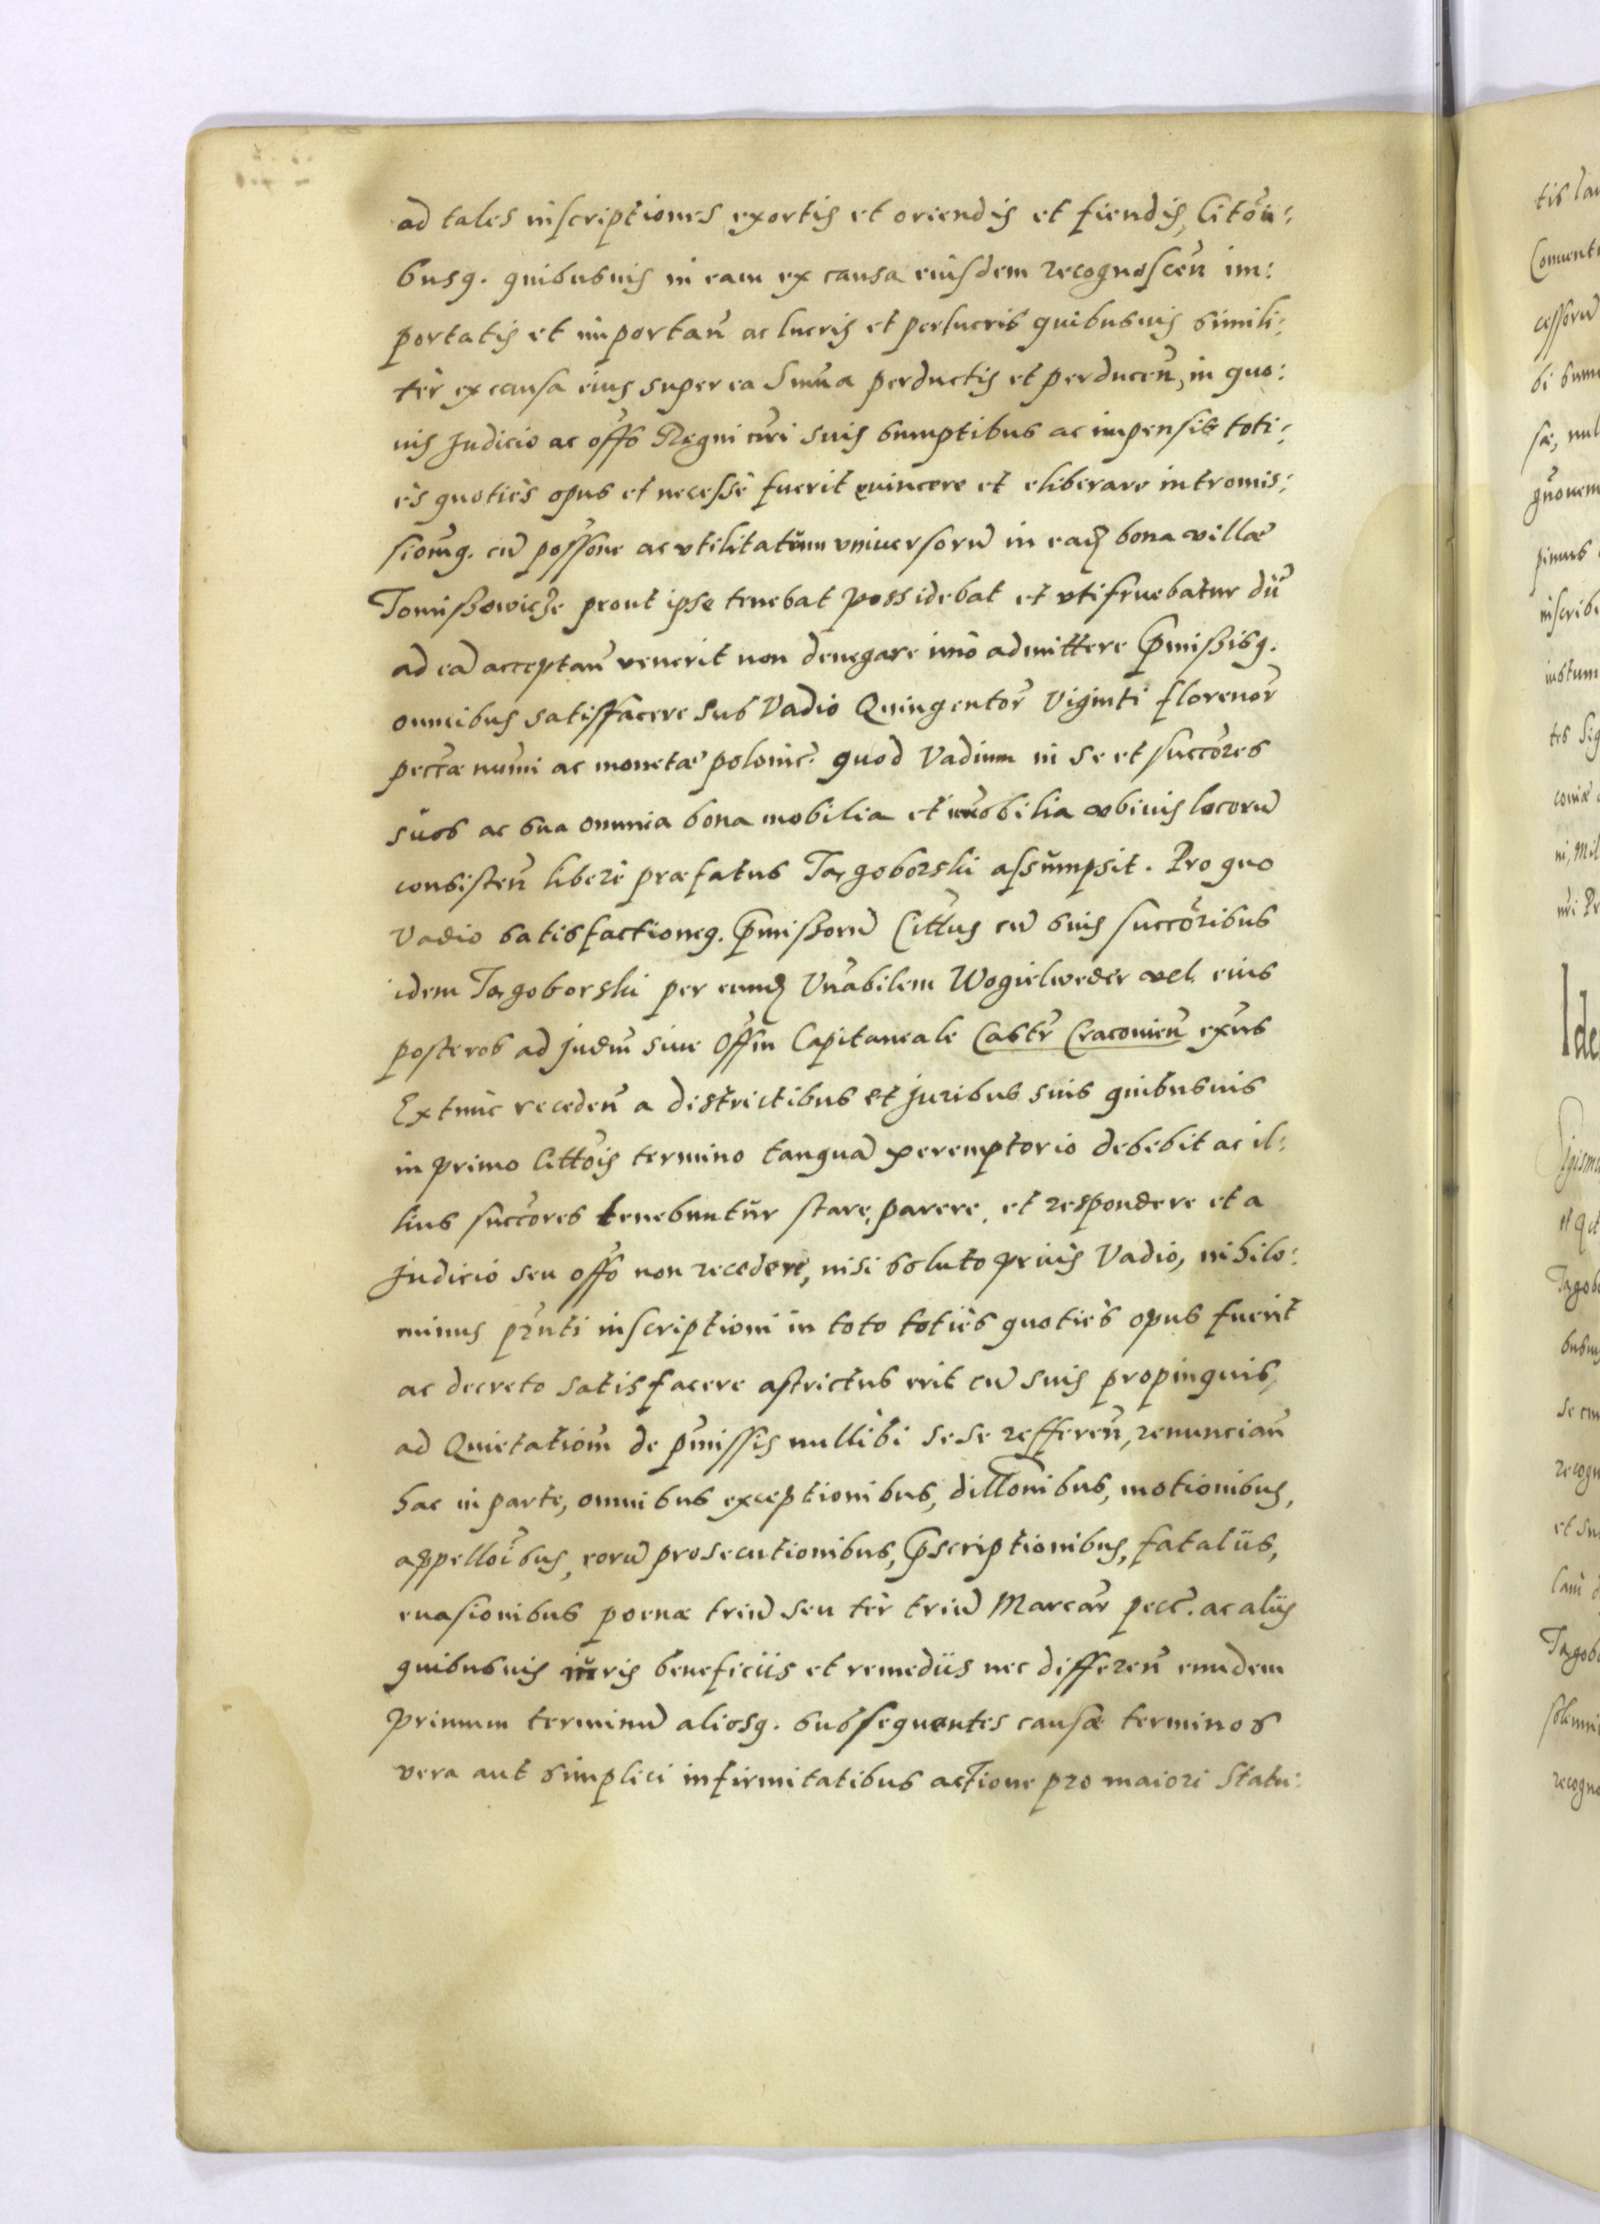 ad tales inscriptiones exortis et oriendis et fiendis, Citõni:
busq. quibusuis in eam ex causa eiusdem recognosceñ im:
portatis et importañ ac lucris et perlucris quibusuis simili:
ter ex causa eius super ea Smũa perductis et perduceñ, in quo:
uis Judicio ac offõ Regni cũi suis sumptibus ac impensis toti:
ès quotiès opus et necessè fuerit euincere et eliberare intromis:
sionẽq. cũ possõne ac vtilitatum vniuersorũ in ead bona villæ
Tomissowicze prout ipse tenebat possidebat et vtifruebatur dũ
ad eã acceptañ venerit non denegare imò admittere p̃missisq.
omnibus satisffacere sub Vadio Quingentor̃ Viginti florenor̃
pecc̃æ numi ac monetæ polonic. quod Vadium in se et succõres
suos ac sua omnia bona mobilia et im̃obilia vbiuis locorũ
consisteñ liberè præfatus Targoborski assũmpsit. Pro quo
Vadio satisfactioneq. p̃missorũ Cittus cũ suis succõribus
idem Targoborski per eund Vñabilem Wogielweder vel eius
posteros ad judm̃ siue Offm̃ Capitaneale Castr̃ Cracouieñ exũs
Extunc recedeñ a districtibus et juribus suis quibusuis
in primo Cittõis termino tanquã peremptorio debebit ac il:
lius succõres tenebuntũr stare, parere, et respondere et a
Judicio seu offõ non recedere, nisi soluto priùs Vadio, nihilo:
minus pr̃nti inscriptioni in toto totiès quotiès opus fuerit
ac decreto satisfacere astrictus erit cũ suis propinquis,
ad Quietatiom̃ de p̃missis nullibi sese refferẽn, renunciañ
hac in parte, omnibus exceptionibus, dillõnibus, motionibus,
appellõibus, eorũ prosecutionibus, p̃scriptionibus, fataliis,
euasionibus poenæ triũ seu tèr triũ Marcar̃ pecc̃. ac aliis
quibusuis iũris beneficiis et remediis nec differeñ eundem
primum terminũ aliosq. subsequentes causæ terminos
vera aut simplici infirmitatibus actione pro maiori Statu: